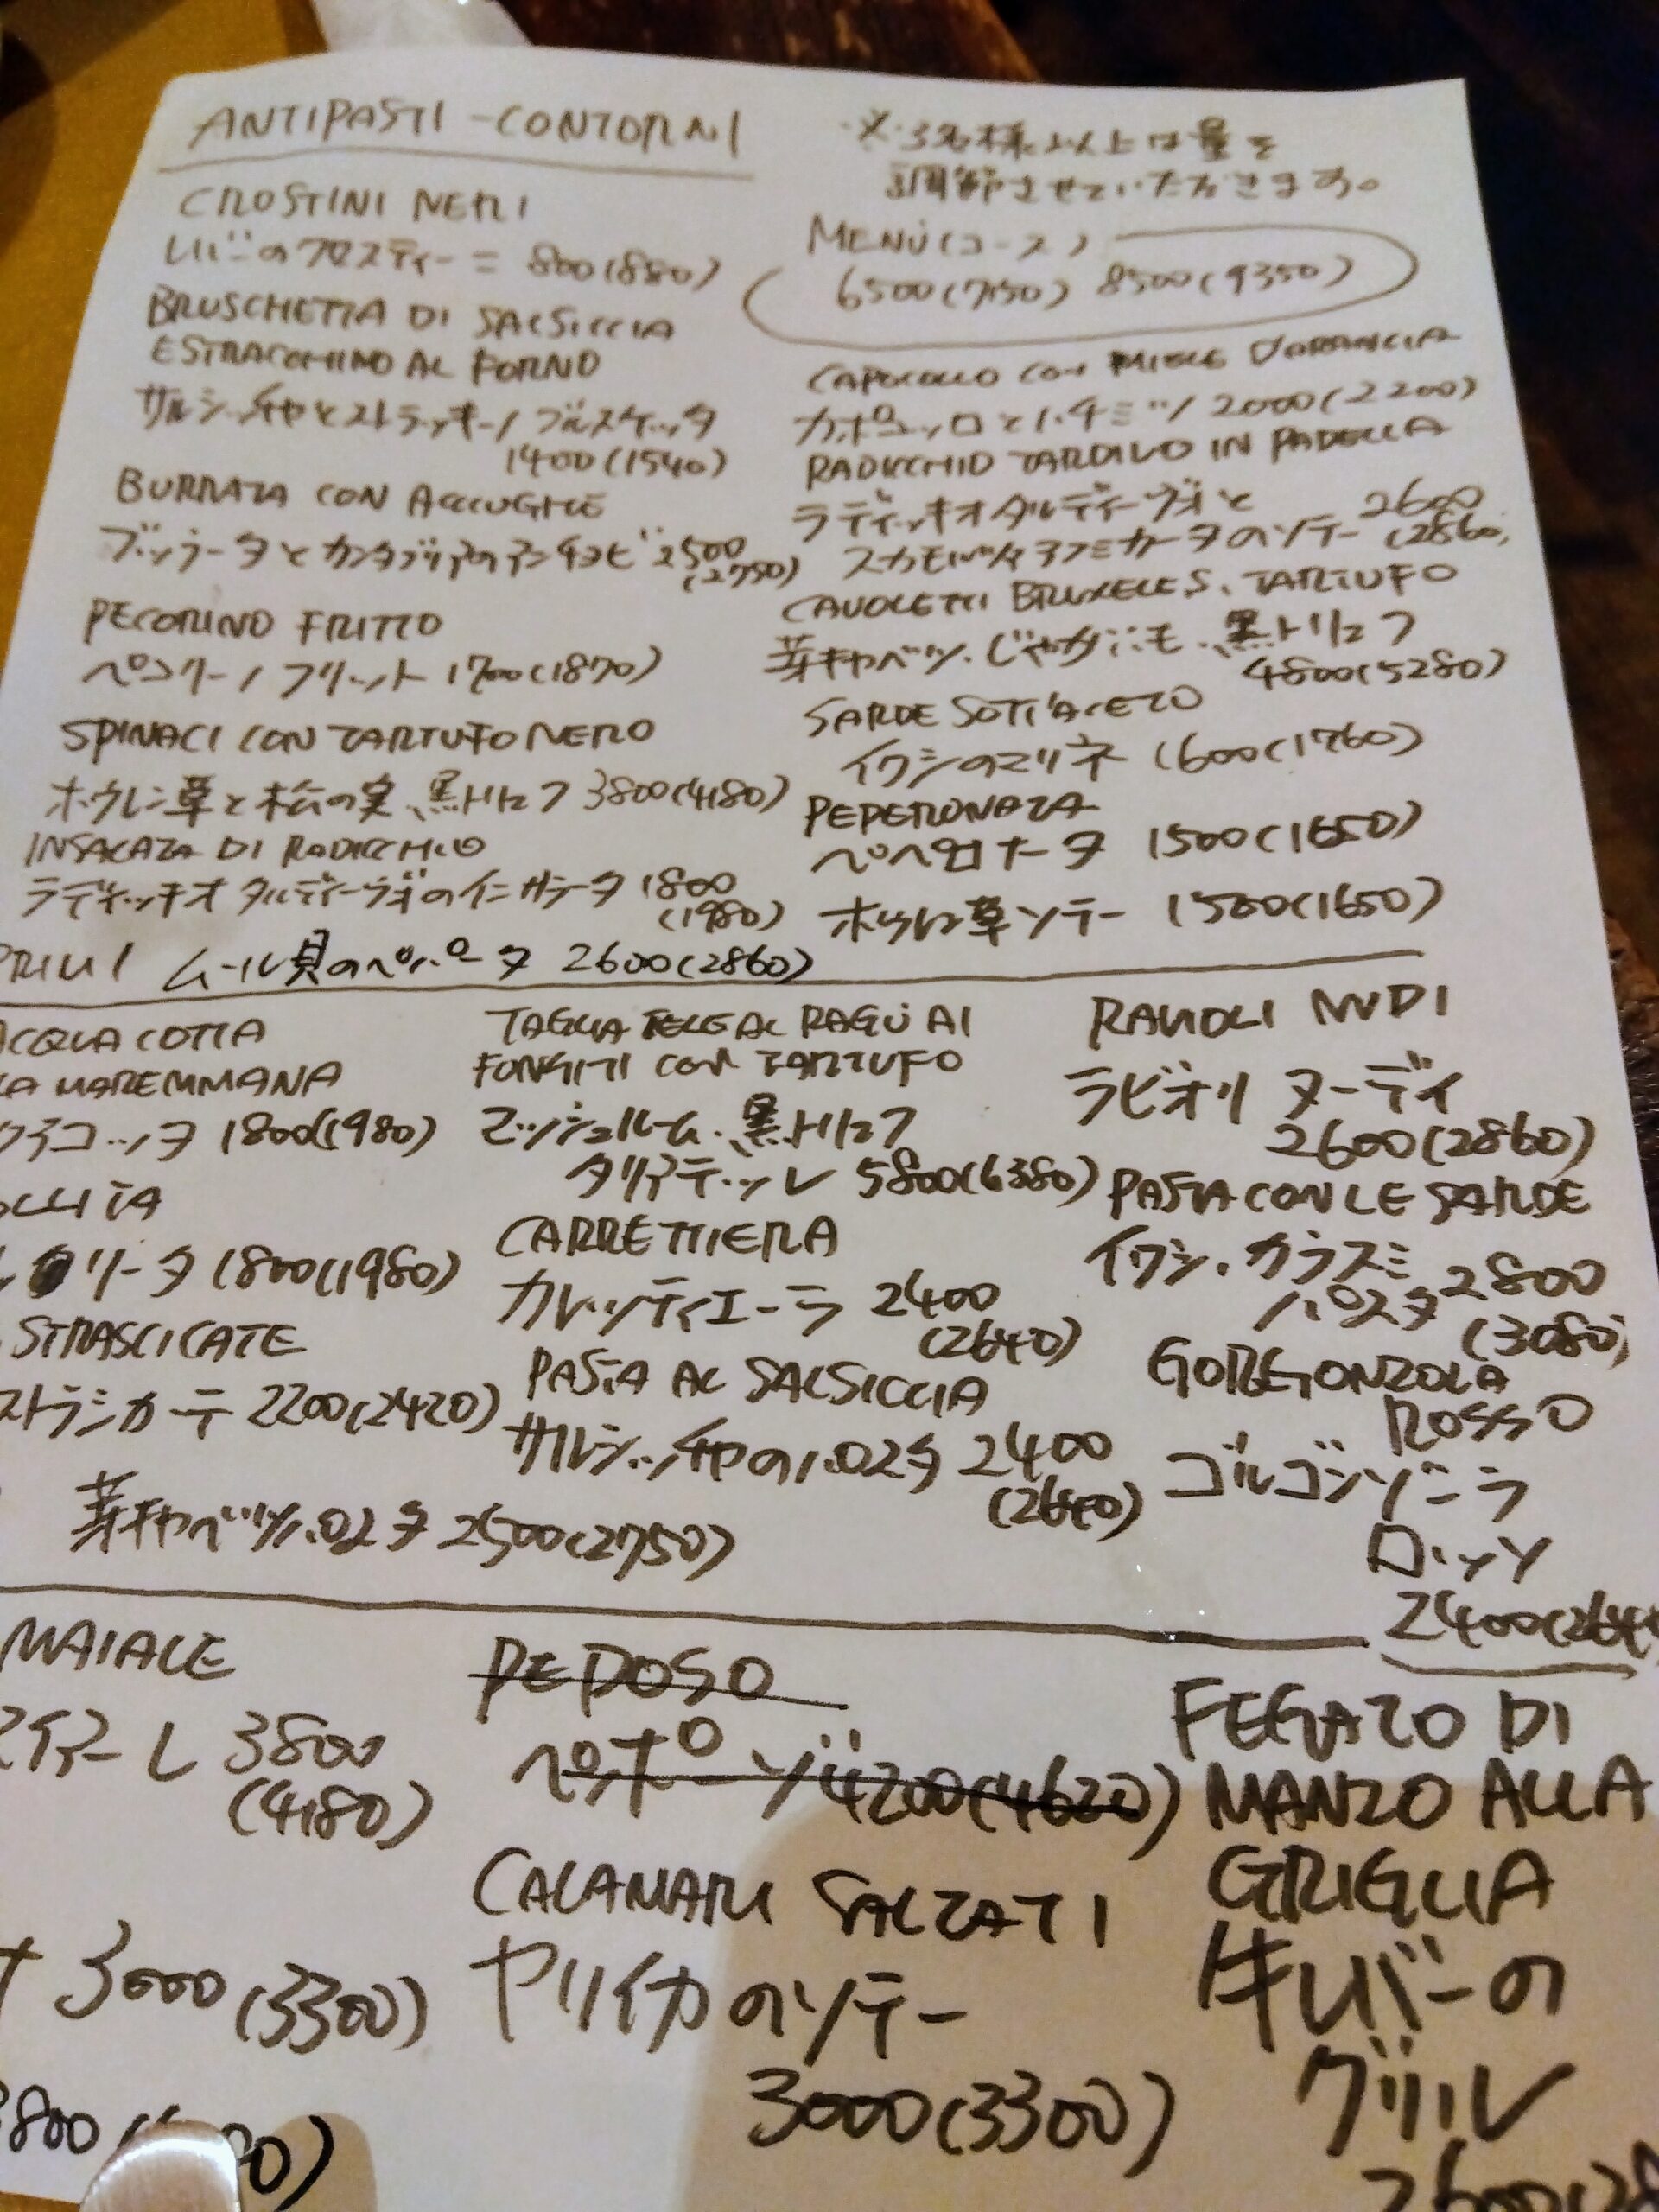 ANTIPASTI - CONTORNI
CROSTINI NERI
レバーのクロスティーニ 800(880)
BRUSCHETTA DI SALSICCIA
E STRACCHINO AL FORNO
サルシッチャとストラッキーノ ブルスケッタ
1400(1540)
BURRATA CON ACCIUGHE
ブッラータとカンタブリアのアンチョビ 2500
(2750)
PECORINO FRITTO
ペコリーノ フリット 1700(1870)
SPINACI CON TARTUFO NERO
ホウレン草と松の実、黒トリュフ 3800(4180)
INSALATA DI RADICCHIO
ラディッキオ タルディーヴォのインサラータ 1800
(1980)
ムール貝のペパータ 2600(2860)
※3名様以上は量を
調節させていただきます。
MENÙ(コース)
6500(7150) 8500(9350)
CAPOCOLLO CON MIELE D'ARANCIA
カポコッロとハチミツ 2000(2200)
RADICCHIO TARDIVO IN PADELLA
ラディッキオタルディーヴォと 2600
スカモルツァアフミカータのソテー (2860)
CAVOLETTI BRUXELES, TARTUFO
芽キャベツ、じゃがいも、黒トリュフ
4800(5280)
SARDE SOTT'ACETO
イワシのマリネ 1600(1760)
PEPERONATA
ペペロナータ 1500(1650)
ホウレン草ソテー 1500(1650)
PRIMI
ACQUA COTTA
LA MAREMMANA
アコッタ 1800(1980)
OLLITA
リータ 1800(1980)
STRASCICATE
ストラシカーテ 2200(2420)
芽キャベツパスタ 2500(2750)
TAGLIATELLE AL RAGÙ AI
FUNGHI CON TARTUFO
マッシュルーム、黒トリュフ
タリアテッレ 5800(6380)
CARRETTIERA
カレッティエーラ 2400
(2640)
PASTA AL SALSICCIA
サルシッチャのパスタ 2400
(2640)
RAVIOLI NUDI
ラビオリ ヌーディ
2600(2860)
PASTA CON LE SARDE
イワシ、カラスミ 2800
パスタ (3080)
GORGONZOLA
ROSSO
ゴルゴンゾーラ
ロッソ
2400(264
MAIALE
マイアーレ 3800
(4180)
3000(3300)
800
PEPOSO
ペポーゾ 4200(4620)
CALAMARI SALTATI
ヤリイカのソテー
3000(3300)
FEGATO DI
MANZO ALLA
GRIGLIA
牛レバーの
グリル